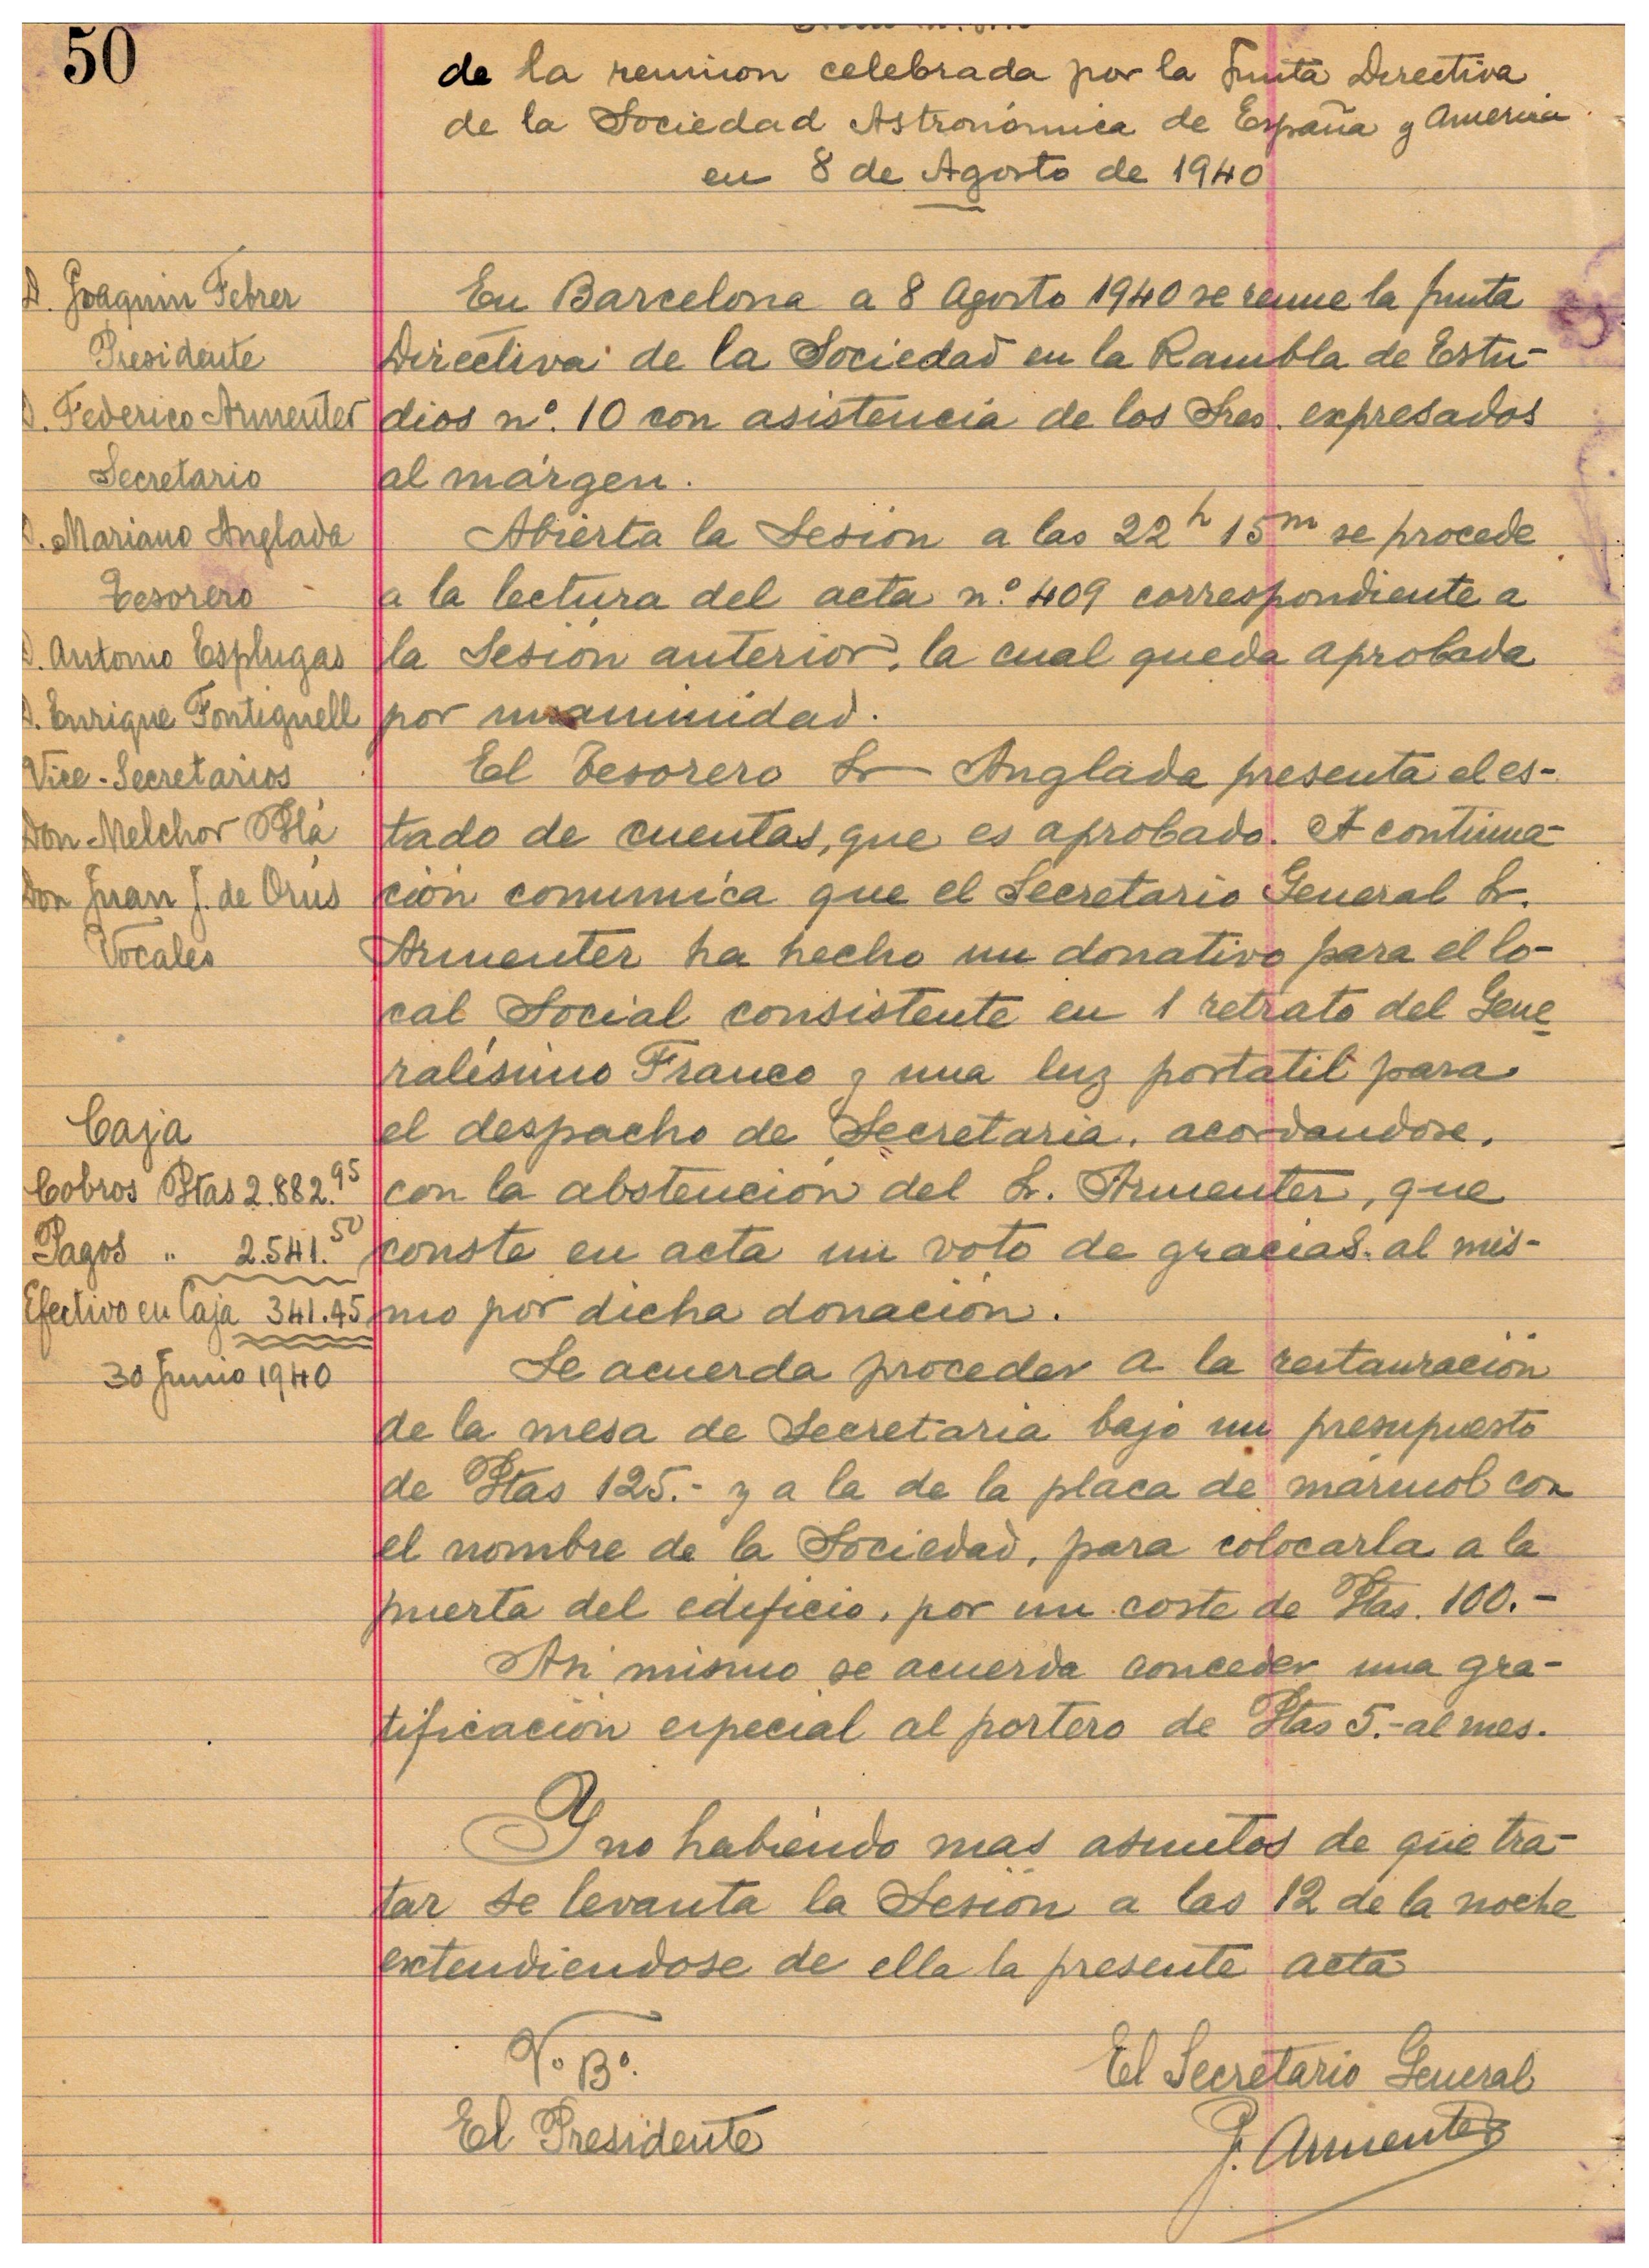 50
de la reunion celebrada por la Junta Directiva
de la Sociedad Astronómica de España y America
en 8 de Agosto de 1940
D. Joaquin Febrer
Presidente
D. Federico Armenter
Secretario
D. Mariano Anglada
Tesorero
D. Antonio Esplugas
D. Enrique Fontignell
Vice-Secretarios
Don Melchor Plá
Don Juan J. de Orús
Vocales
En Barcelona a 8 Agosto 1940 se reune la Junta
Directiva de la Sociedad en la Rambla de Estu-
dios nº. 10 con asistencia de los Sres. expresados
al márgen.
Abierta la Sesión a las 22h 15m se procede
a la lectura del acta nº. 409 correspondiente a
la Sesión anterior, la cual queda aprobada
por unanimidad.
El Tesorero Sr Anglada presenta el es-
tado de cuentas, que es aprobado. A continua-
ción comunica que el Secretario General Sr.
Armenter ha hecho un donativo para el lo-
cal Social consistente en 1 retrato del Gene-
ralísimo Franco y una luz portatil para
el despacho de Secretaria, acordandose,
con la abstención del Sr. Armenter, que
conste en acta un voto de gracias al mis-
mo por dicha donación.
Caja
Cobros Ptas 2.882.95
Pagos " 2.541.50
Efectivo en Caja 341.45
30 Junio 1940
Se acuerda proceder a la restauración
de la mesa de Secretaria bajo un presupuesto
de Ptas 125.- y a la de la placa de mármol con
el nombre de la Sociedad, para colocarla a la
puerta del edificio, por un coste de Ptas. 100.-
Asi mismo se acuerda conceder una gra-
tificación especial al portero de Ptas 5.- al mes.
Y no habiendo mas asuntos de que tra-
tar se levanta la Sesión a las 12 de la noche
extendiendose de ella la presente acta
Vº. Bº.
El Presidente
El Secretario General
F. Armenter